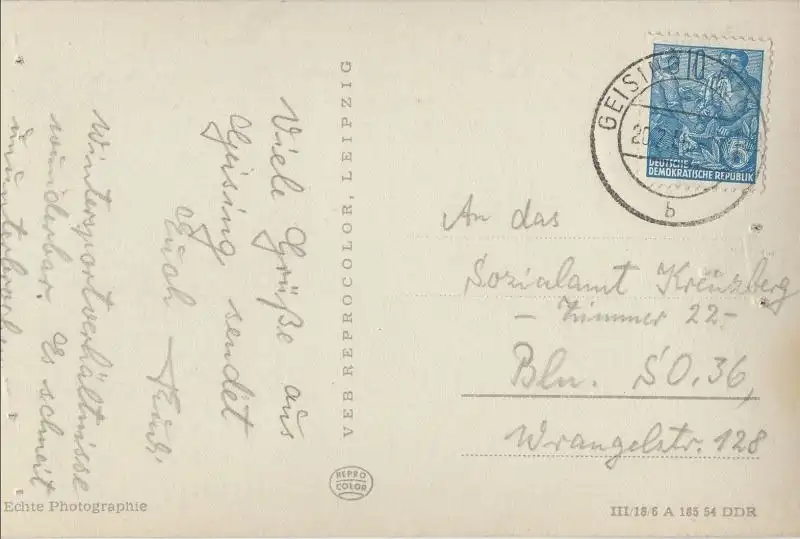 Viele Grüße aus
Geising sendet
Euch
Wintersportverhältnisse
wunderbar. Es schneit
ununterbrochen
VEB REPROCOLOR, LEIPZIG
GEISING
10
b
5
DEUTSCHE
DEMOKRATISCHE REPUBLIK
An das
Sozialamt Kreuzberg
- Zimmer 22-
Bln. SO.36,
Wrangelstr. 128
REPRO
COLOR
Echte Photographie
III/18/6 A 185 54 DDR